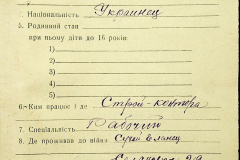 4. Національність Украинец
5. Родинний стан
при ньому діти до 16 років:
1.
2.
3.
4.
5.
6. Ким працює і де Строй-контора
7. Спеціальність Рабочий
8. Де проживав до війни